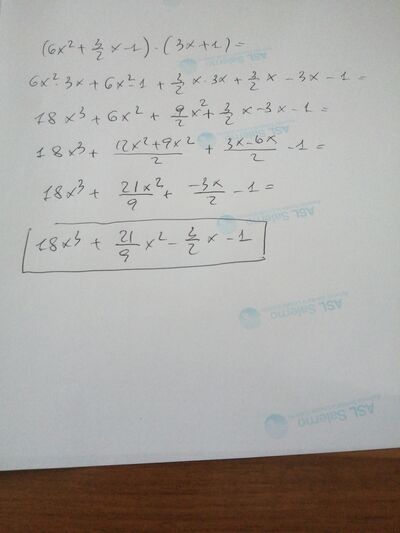 (6x² + 3/2 x - 1) · (3x + 1) =
6x² · 3x + 6x² · 1 + 3/2 x · 3x + 3/2 x - 3x - 1 =
18x³ + 6x² + 9/2 x² + 3/2 x - 3x - 1 =
18x³ + (12x² + 9x²)/2 + (3x - 6x)/2 - 1 =
18x³ + 21x²/9 + -3x/2 - 1 =
18x³ + 21/9 x² - 3/2 x - 1
ASL Salerno
ASL Salerno